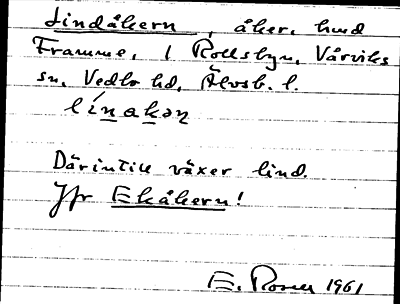 Lindåkern, åker, hmd
Framme, i Rollsbyn, Vårviks
sn, Vedbo hd, Älvsb. l.
línakəṇ
Därintill växer lind.
Jfr Ekåkern!
E. Rosén 1961